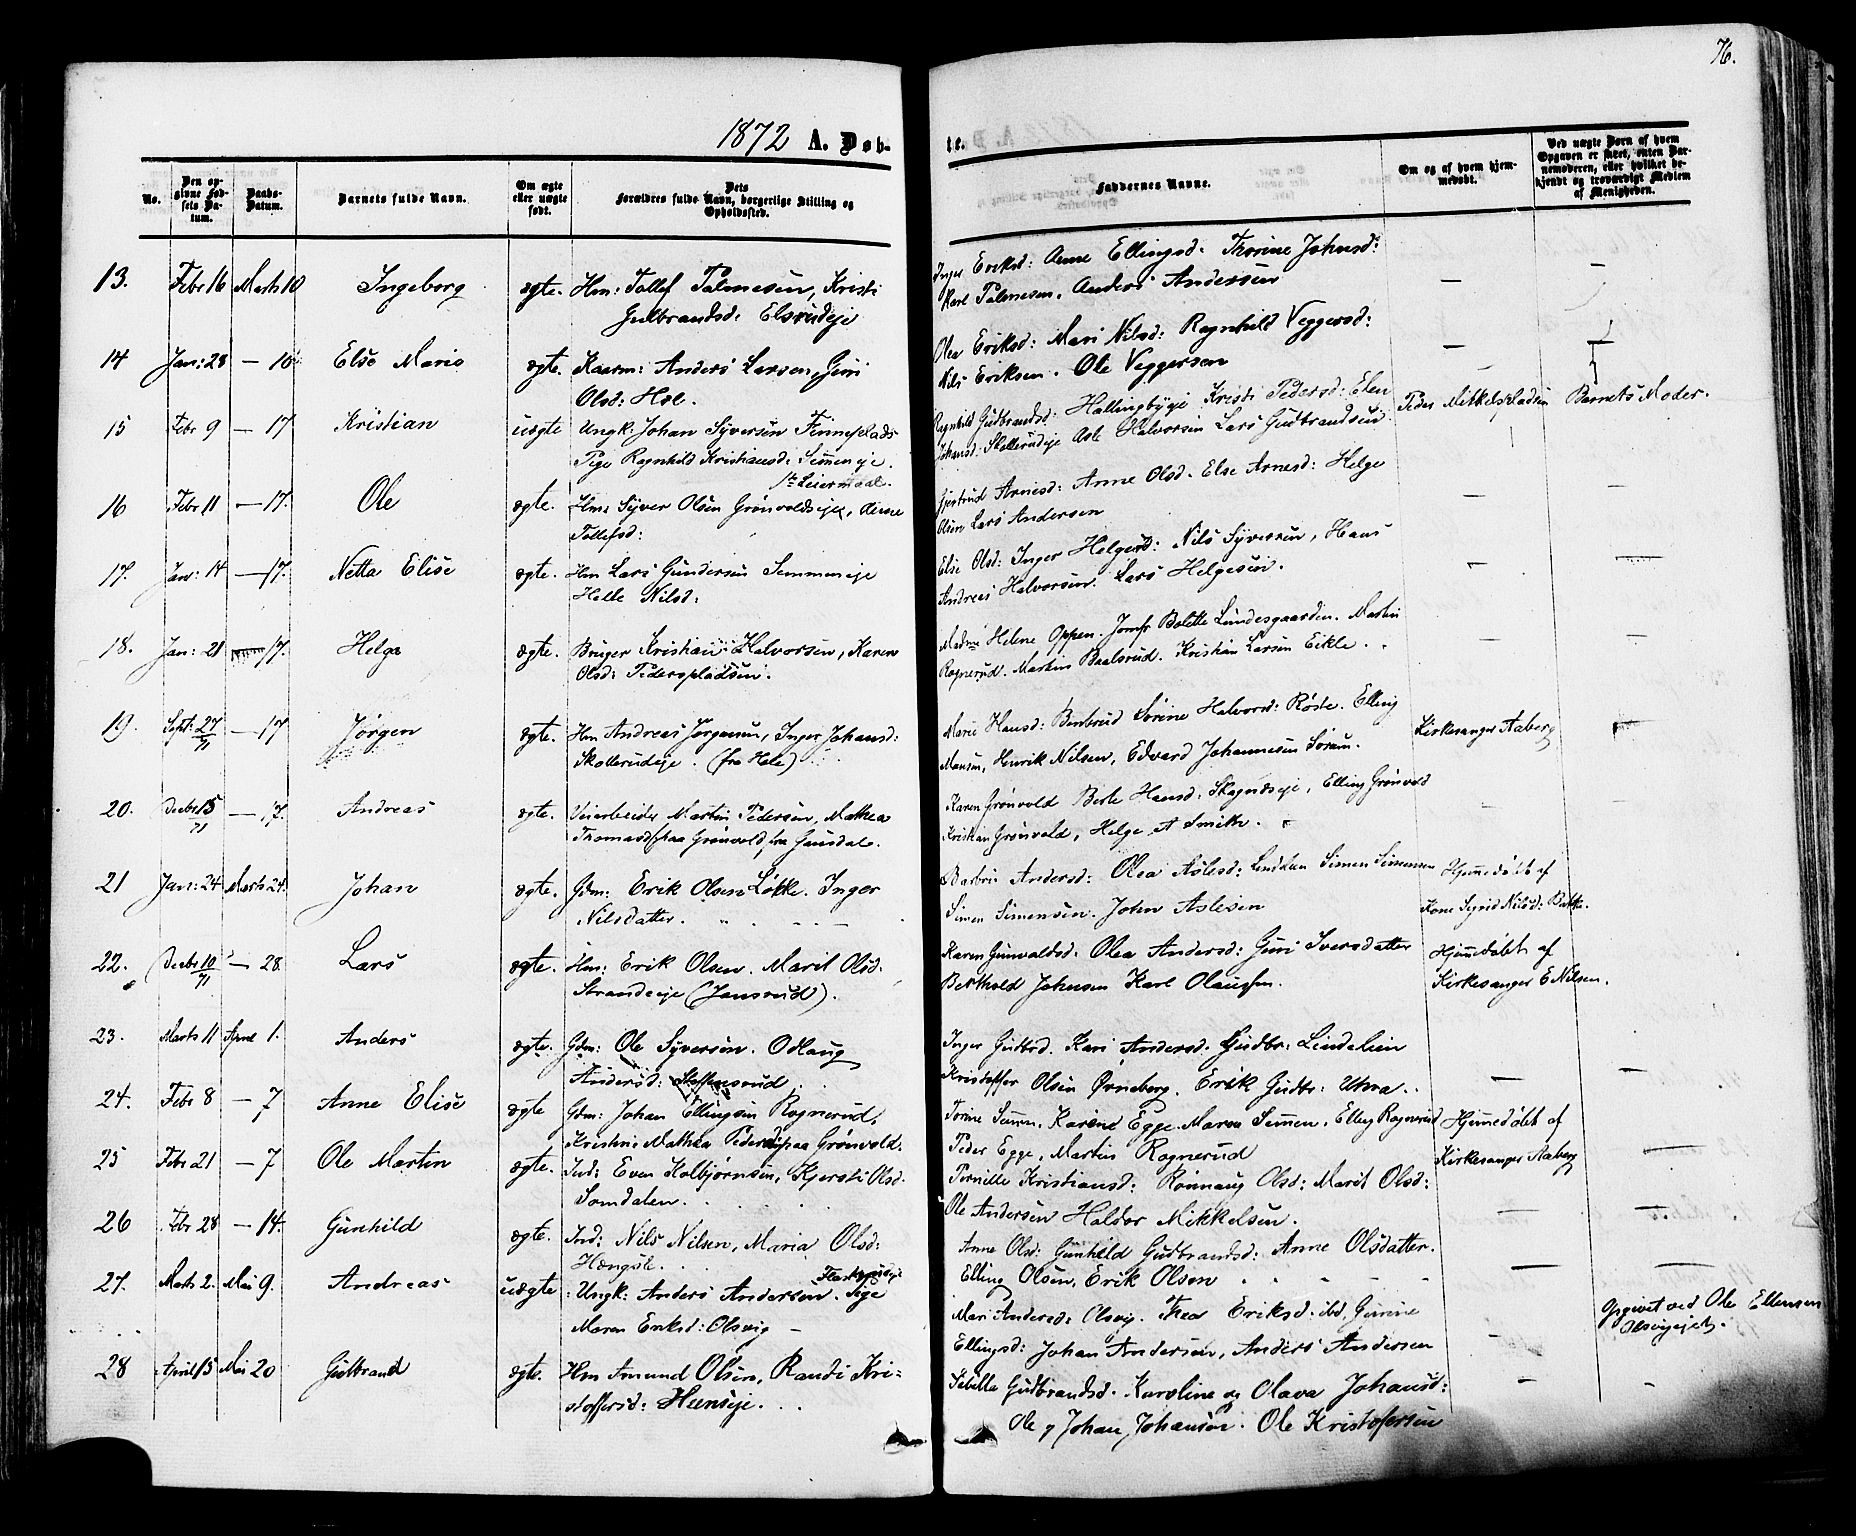 76.
1872 A. Døb-
te.
No.
Den op-
givne Fød-
sels Da-
tum.
Daabs-
Datum.
Barnets fulde Navn.
Om ægte
eller uægte
født.
Dets
Forældres fulde Navn, borgerlige Stilling og
Opholdssted.
Faddernes Navne.
Om og af hvem hjem-
medøbt.
Ved uægte Børn af hvem
Opgaven er skeet, enten Bar-
nemoderen, eller hvilket be-
kjendt og troværdigt Medlem
af Menigheden.
13. Febr 16 Marts 10 Ingeborg ægte. Hm: Tollef Palmesen, Kristi
Gulbrandsd: Elsrudeje
Inger Eriksd: Anne Ellingsd. Thorine Johnsd: —
Karl Palmesen. Anders Andersen —
14 Jan: 28 — 10 Else Marie ægte. Kaarm: Anders Larsen, Guri
Olsd: Hol.
Olea Eriksd: Mari Nilsd: Ragnhild Veggersd:
Nils Eriksen. Ole Veggersen —
15 Febr 9 — 17 Kristian uægte Ungk: Johan Syversen Finneplads
Pige Ragnhild Kristiansd: Simmenseje.
1ste Leiermaal.
Ragnhild Gudbrandsd: Hallingbyeje Kristi Pedersd: Elen Peder Mikkelspladsen Barnets Moder.
Johansd: Skollerudeje Asle Halvorsen Lars Gudbrandsen
16 Febr 11 — 17. Ole ægte. Hm: Syver Olsen Grønvoldseje, Anne
Tollefsd:
Gjertrud Arnesd: Anne Olsd. Else Arnesd: Helge —
Olsen Lars Andersen
17. Jan: 14 — 17. Netta Elise ægte. Hm Lars Gundersen Semmeneje
Helle Nilsd:
Else Olsd: Inger Helgesd: Nils Syversen, Hans —
Andreas Halvorsen. Lars Helgesen.
18. Jan: 21 — 17. Helga ægte. Bruger Kristian Halvorsen, Karen
Olsd: Pederspladsen.
Madme Helene Oppen. Jomfr Bolette Lundesgaarden. Martin —
Ragnerud. Martin Baalsrud. Kristian Larsen Eikle.
19. Septr: 27/71 — 17 Jørgen ægte. Hm Andreas Jørgensen, Inger Johansd:
Skollerudeje. (fra Hole)
Marie Hansd: Benterud Sørine Halvorsd: Røste. Elling Kirkesanger Aaberg —
Monsen, Henrik Nilsen, Edvard Johannesen Sørum.
20. Decbr 15/71 — 17. Andreas ægte. Veiarbeider Martin Pedersen, Mathea
Thomasd paa Grønvold, fra Gausdal.
Karen Grønvold Berte Hansd: Skagnæseje, Elling Grønvold —
Kristian Grønvold, Helge, A Smith.
21 Jan: 24 Marts 24. Johan ægte. Gdm: Erik Olsen Løkke. Inger
Nilsdatter.
Barbro Andersd: Olea Aslesd: Lindelien Simen Simensen Hjemmedøbt af
Simen Simensen. John Aslesen Kone Sigrid Nilsd: Bakke.
22. Decbr 10/71 — 28 Lars ægte. Hm: Erik Olsen. Marit Olsd:
Strandeeje (Jansrud).
Karen Gunvaldsd: Olea Andersd: Guri Iversdatter Hjemmedøbt af
Berthold Johnsen Karl Olaussen. Kirkesanger E Nilsen.
23. Marts 11 April 1. Anders ægte. Gdm: Ole Syversen. Odlaug
Andersd: Steffensrud
Inger Gudbrd. Kari Andersd. Gudbr: Lindelien —
Kristoffer Olsen Ørneberg. Erik Gudbr: Utvra.
24. Febr 8 — 7 Anne Elise ægte Gdm: Johan Ellingsen Ragnerud,
Kristine Mathea Pedersd paa Grønvold.
Torine Semmen. Karine Egge. Maren Semmen. Elling Ragnerud Hjemmedøbt af
Peder Egge, Martin Ragnerud Kirkesanger Aaberg —
25 Febr 21 — 7 Ole Martin ægte. Ind: Even Kolbjørnsen, Kjersti Olsd.
Somdalen.
Pernille Kristiansd: Rønnaug Olsd: Marit Olsd:
Ole Andersen Haldor Mikkelsen. —
26 Febr 28 — 14. Gunhild ægte. Ind: Nils Nilsen, Maria Olsd:
Hængsle.
Anne Olsd: Gunhild Gudbrandsd: Anne Olsdatter.
Elling Olsen, Erik Olsen —
27. Marts 2. Mai 9. Andreas uægte : Ungk: Anders Andersen. Pige
Maren Eriksd: Olsvig —
Mari Andersd: Olsvig. Thea Eriksd. ibd, Gurine Opgivet ved Ole Ellensen
Olsvigejet.
Ellingsd: Johan Andersen, Anders Andersen —
28 April 15 Mai 20 Gulbrand ægte. Hm Amund Olsen, Randi Kri-
stoffersd: Hunseje.
Sibille Gudbrandsd. Karoline og Olava Johansd: —
Ole og Johan Johansen. Ole Kristofersen